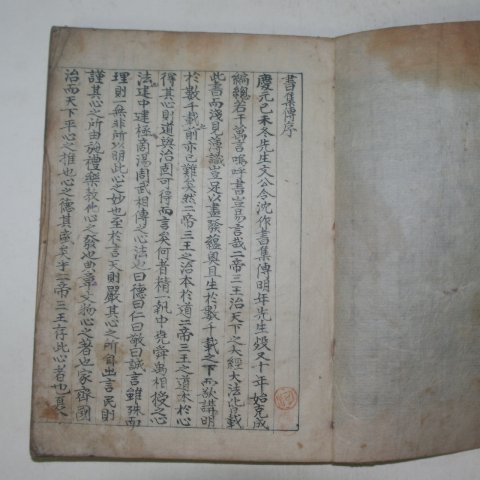 書集傳序
慶元己未冬先生文公令沈作書集傳明年先生歿又十年始克成
編總若干萬言嗚呼書豈易言哉二帝三王治天下之大經大法皆載
此書而淺見薄識豈足以盡發蘊奧且生於數千載之下而欲講明
於數千載之前亦已難矣然二帝三王之治本於道二帝三王之道本於心
得其心則道與治固可得而言矣何者精一執中堯舜禹相授之心
法也建中建極商湯周武相傳之心法也曰德曰仁曰敬曰誠言雖殊而
理則一無非所以明此心之妙也至於言天則嚴其心之所自出言民則
謹其心之所由施禮樂敎化心之發也典章文物心之著也家齊國
治而天下平心之推也心之德其盛矣乎二帝三王存此心者也夏